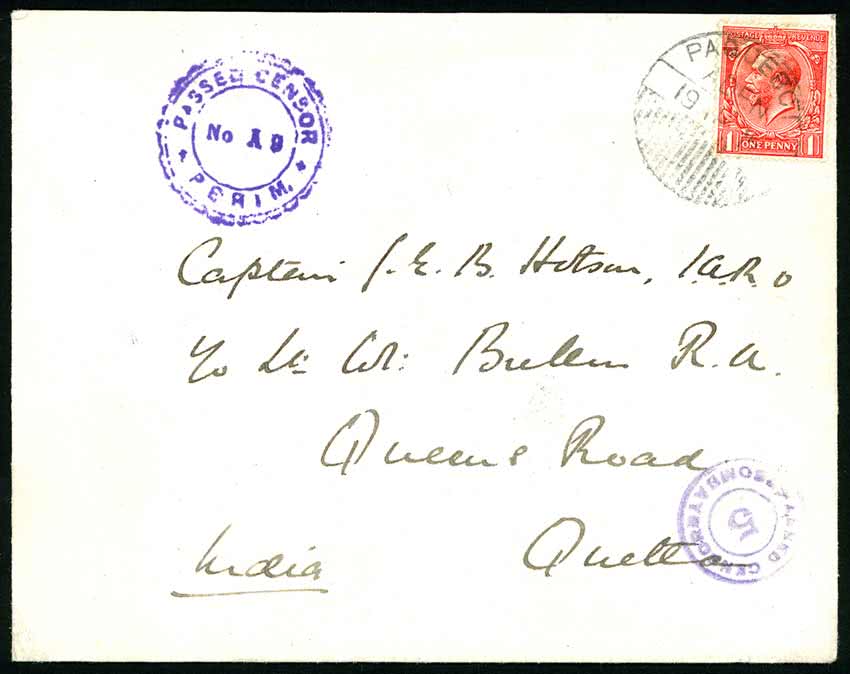 PASSED CENSOR
No A9
PERIM.
PAQUEBOT
ADEN
19
POSTAGE REVENUE
1 ONE PENNY 1
Captain J. E. B. Hotson, I.A.R.O
c/o Lt. Col: Bullen R.A.
Queens Road
Quetta
India
PASSED CENSOR BOMBAY
5